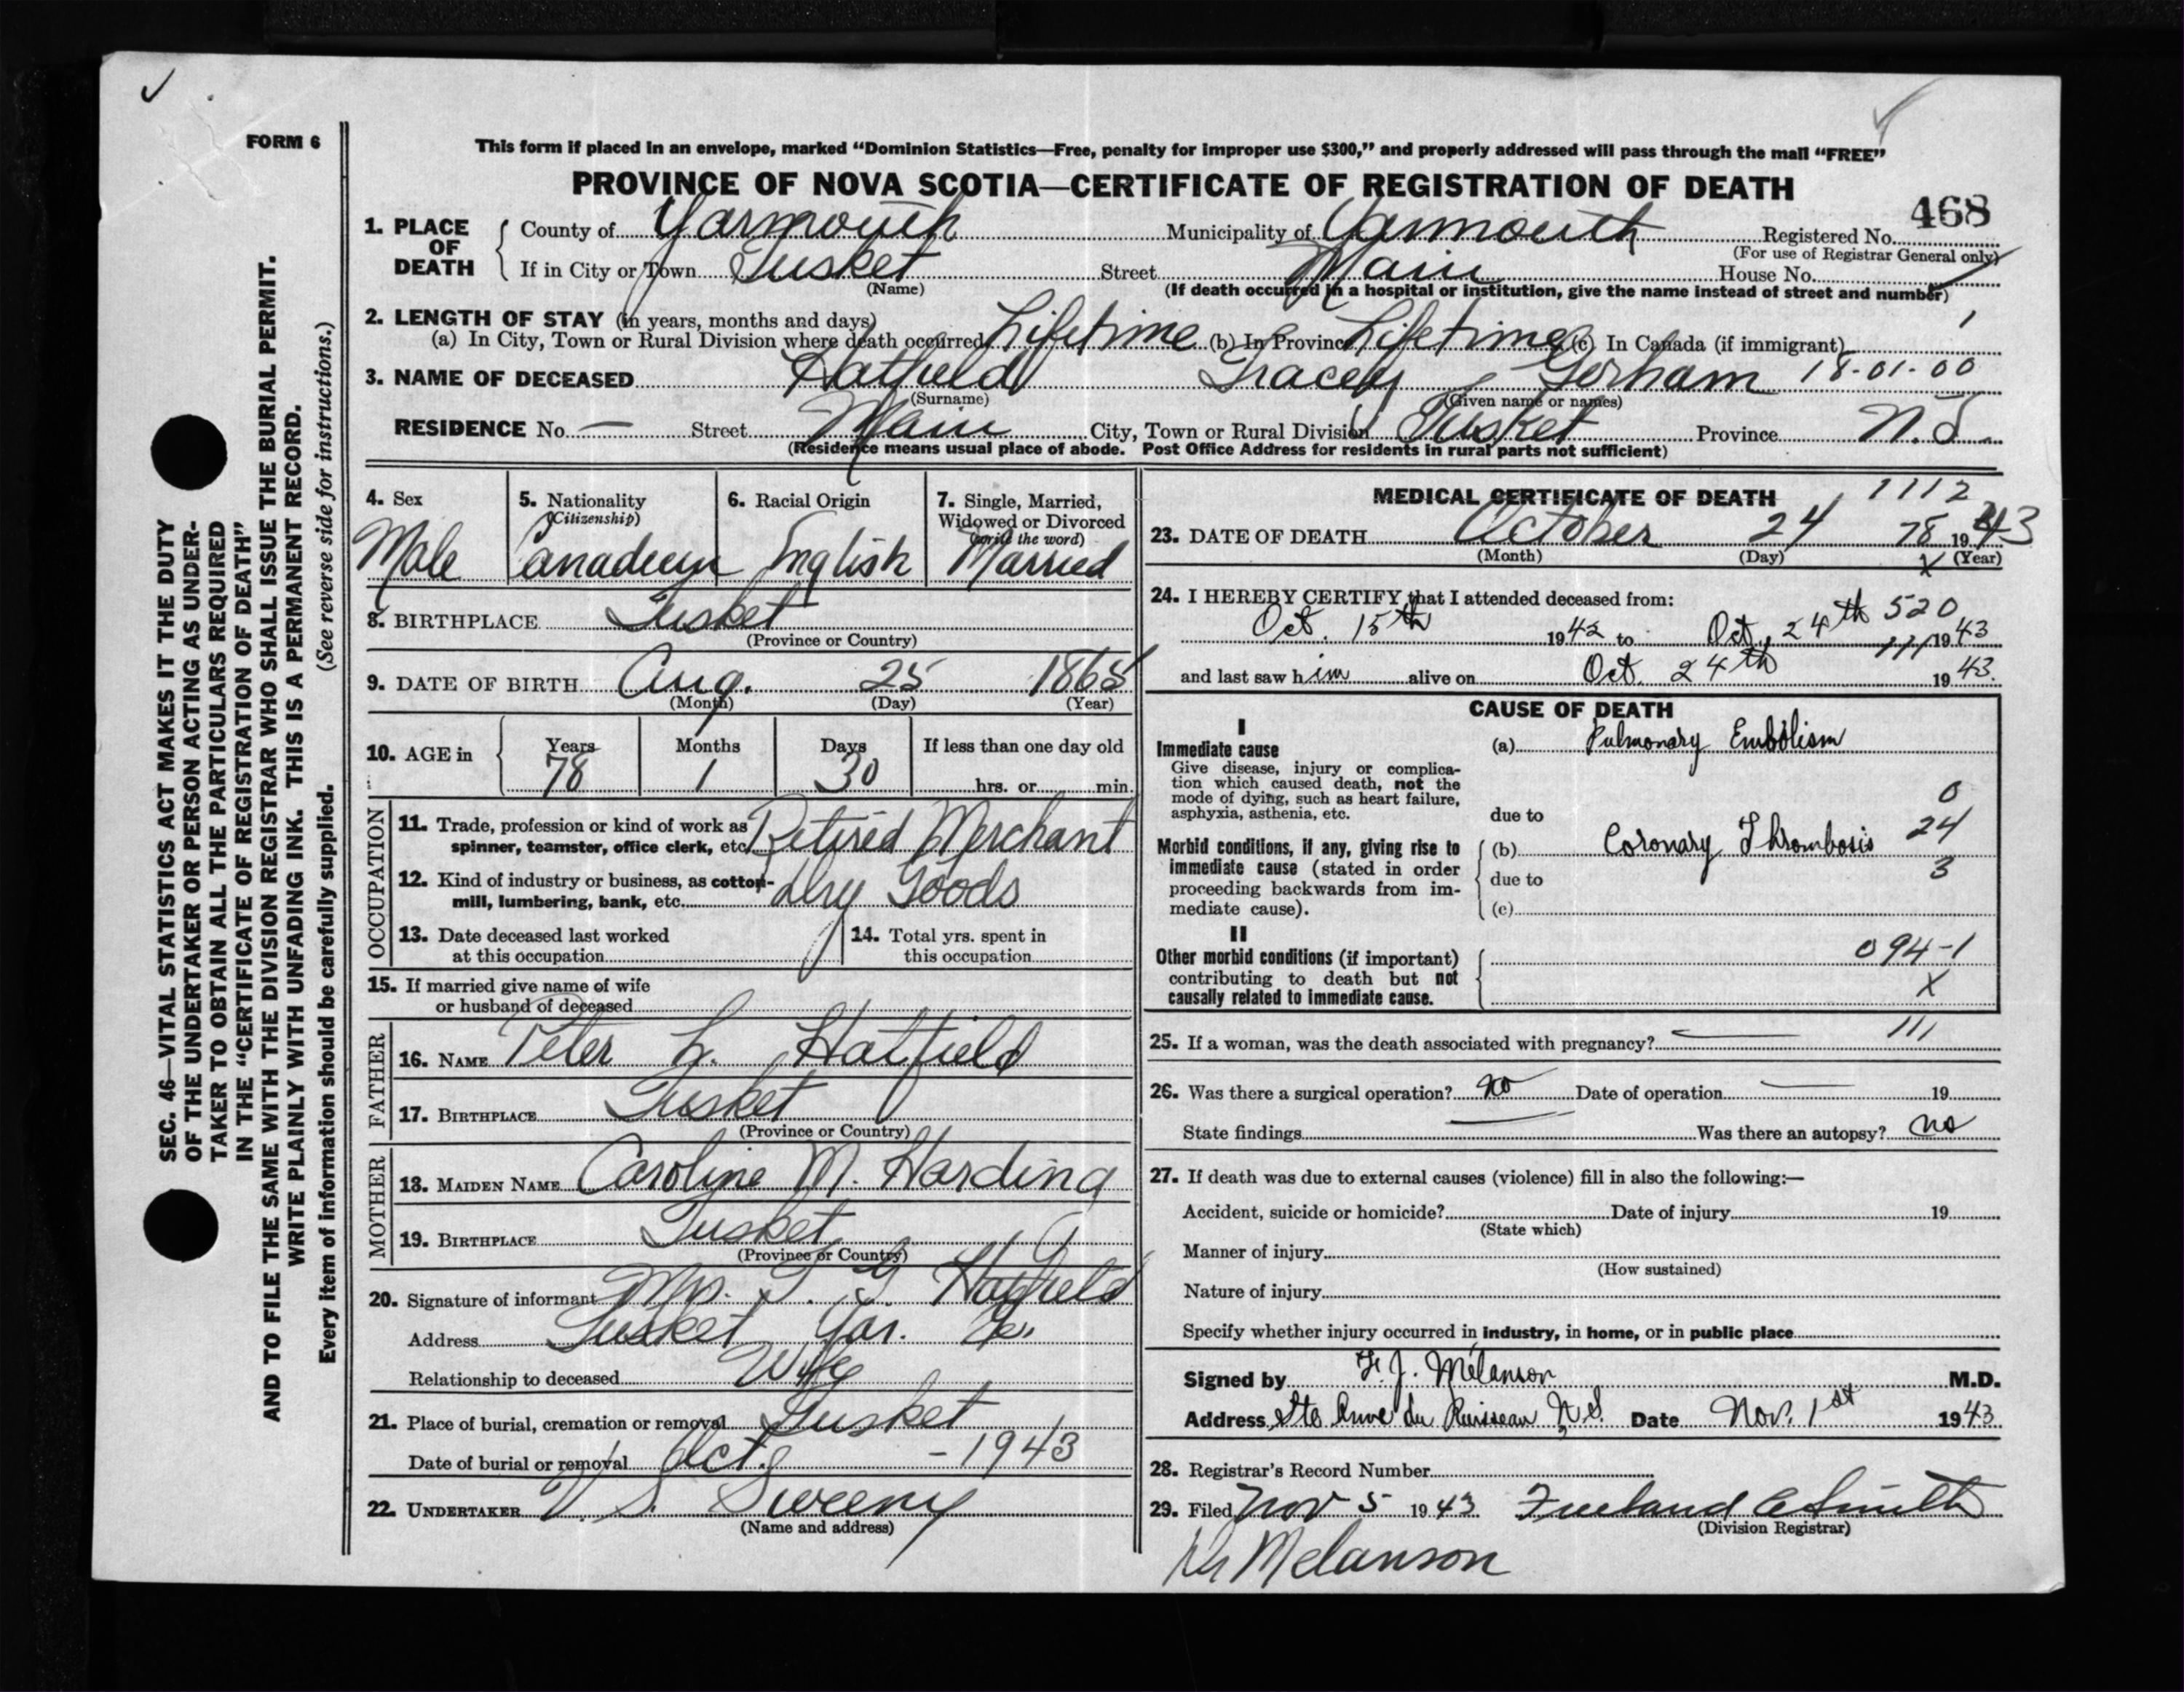 FORM 6
This form if placed in an envelope, marked “Dominion Statistics—Free, penalty for improper use $300,” and properly addressed will pass through the mail “FREE”
PROVINCE OF NOVA SCOTIA—CERTIFICATE OF REGISTRATION OF DEATH
468
1. PLACE OF DEATH County of Yarmouth Municipality of Yarmouth Registered No.
(For use of Registrar General only)
If in City or Town Tusket Street Main House No.
(Name) (If death occurred in a hospital or institution, give the name instead of street and number)
2. LENGTH OF STAY (in years, months and days)
(a) In City, Town or Rural Division where death occurred Lifetime (b) In Province Lifetime (c) In Canada (if immigrant)
3. NAME OF DECEASED Hatfield Tracey Gorham 18-01-00
(Surname) (Given name or names)
RESIDENCE No. — Street Main City, Town or Rural Division Tusket Province N.S.
(Residence means usual place of abode. Post Office Address for residents in rural parts not sufficient)
4. Sex Male
5. Nationality (Citizenship) Canadian
6. Racial Origin English
7. Single, Married, Widowed or Divorced (write the word) Married
8. BIRTHPLACE Tusket
(Province or Country)
9. DATE OF BIRTH Aug. 25 1865
(Month) (Day) (Year)
10. AGE in Years 78 Months 1 Days 30 If less than one day old
hrs. or min.
OCCUPATION
11. Trade, profession or kind of work as spinner, teamster, office clerk, etc. Retired Merchant
12. Kind of industry or business, as cotton-mill, lumbering, bank, etc. Dry Goods
13. Date deceased last worked at this occupation
14. Total yrs. spent in this occupation
15. If married give name of wife or husband of deceased
FATHER
16. NAME Peter L. Hatfield
17. BIRTHPLACE Tusket
(Province or Country)
MOTHER
18. MAIDEN NAME Caroline M. Harding
19. BIRTHPLACE Tusket
(Province or Country)
20. Signature of informant Mrs. T. G. Hatfield
Address Tusket Yar. Co.
Relationship to deceased Wife
21. Place of burial, cremation or removal Tusket
Date of burial or removal Oct. - 1943
22. UNDERTAKER V. S. Sweeny
(Name and address)
MEDICAL CERTIFICATE OF DEATH 1112
23. DATE OF DEATH October 24 78 1943
(Month) (Day) (Year)
X
24. I HEREBY CERTIFY that I attended deceased from: 520
Oct. 15th 1942 to Oct. 24th 1943
111
and last saw him alive on Oct. 24th 1943.
CAUSE OF DEATH
I
Immediate cause (a) Pulmonary Embolism
Give disease, injury or complication which caused death, not the mode of dying, such as heart failure, asphyxia, asthenia, etc.
due to
0
24
3
Morbid conditions, if any, giving rise to immediate cause (stated in order proceeding backwards from immediate cause).
(b) Coronary Thrombosis
due to
(c)
II
Other morbid conditions (if important) contributing to death but not causally related to immediate cause.
094-1
X
111
25. If a woman, was the death associated with pregnancy? —
26. Was there a surgical operation? no Date of operation — 19
State findings — Was there an autopsy? no
27. If death was due to external causes (violence) fill in also the following:—
Accident, suicide or homicide? Date of injury 19
(State which)
Manner of injury
(How sustained)
Nature of injury
Specify whether injury occurred in industry, in home, or in public place
Signed by F. J. Melanson M.D.
Address Ste Anne du Ruisseau N.S. Date Nov. 1st 1943
28. Registrar's Record Number
29. Filed Nov 5 1943 Freeland A Smith
(Division Registrar)
Dr Melanson
SEC. 46—VITAL STATISTICS ACT MAKES IT THE DUTY
OF THE UNDERTAKER OR PERSON ACTING AS UNDER-
TAKER TO OBTAIN ALL THE PARTICULARS REQUIRED
IN THE “CERTIFICATE OF REGISTRATION OF DEATH”
AND TO FILE THE SAME WITH THE DIVISION REGISTRAR WHO SHALL ISSUE THE BURIAL PERMIT.
WRITE PLAINLY WITH UNFADING INK. THIS IS A PERMANENT RECORD.
Every item of information should be carefully supplied. (See reverse side for instructions.)